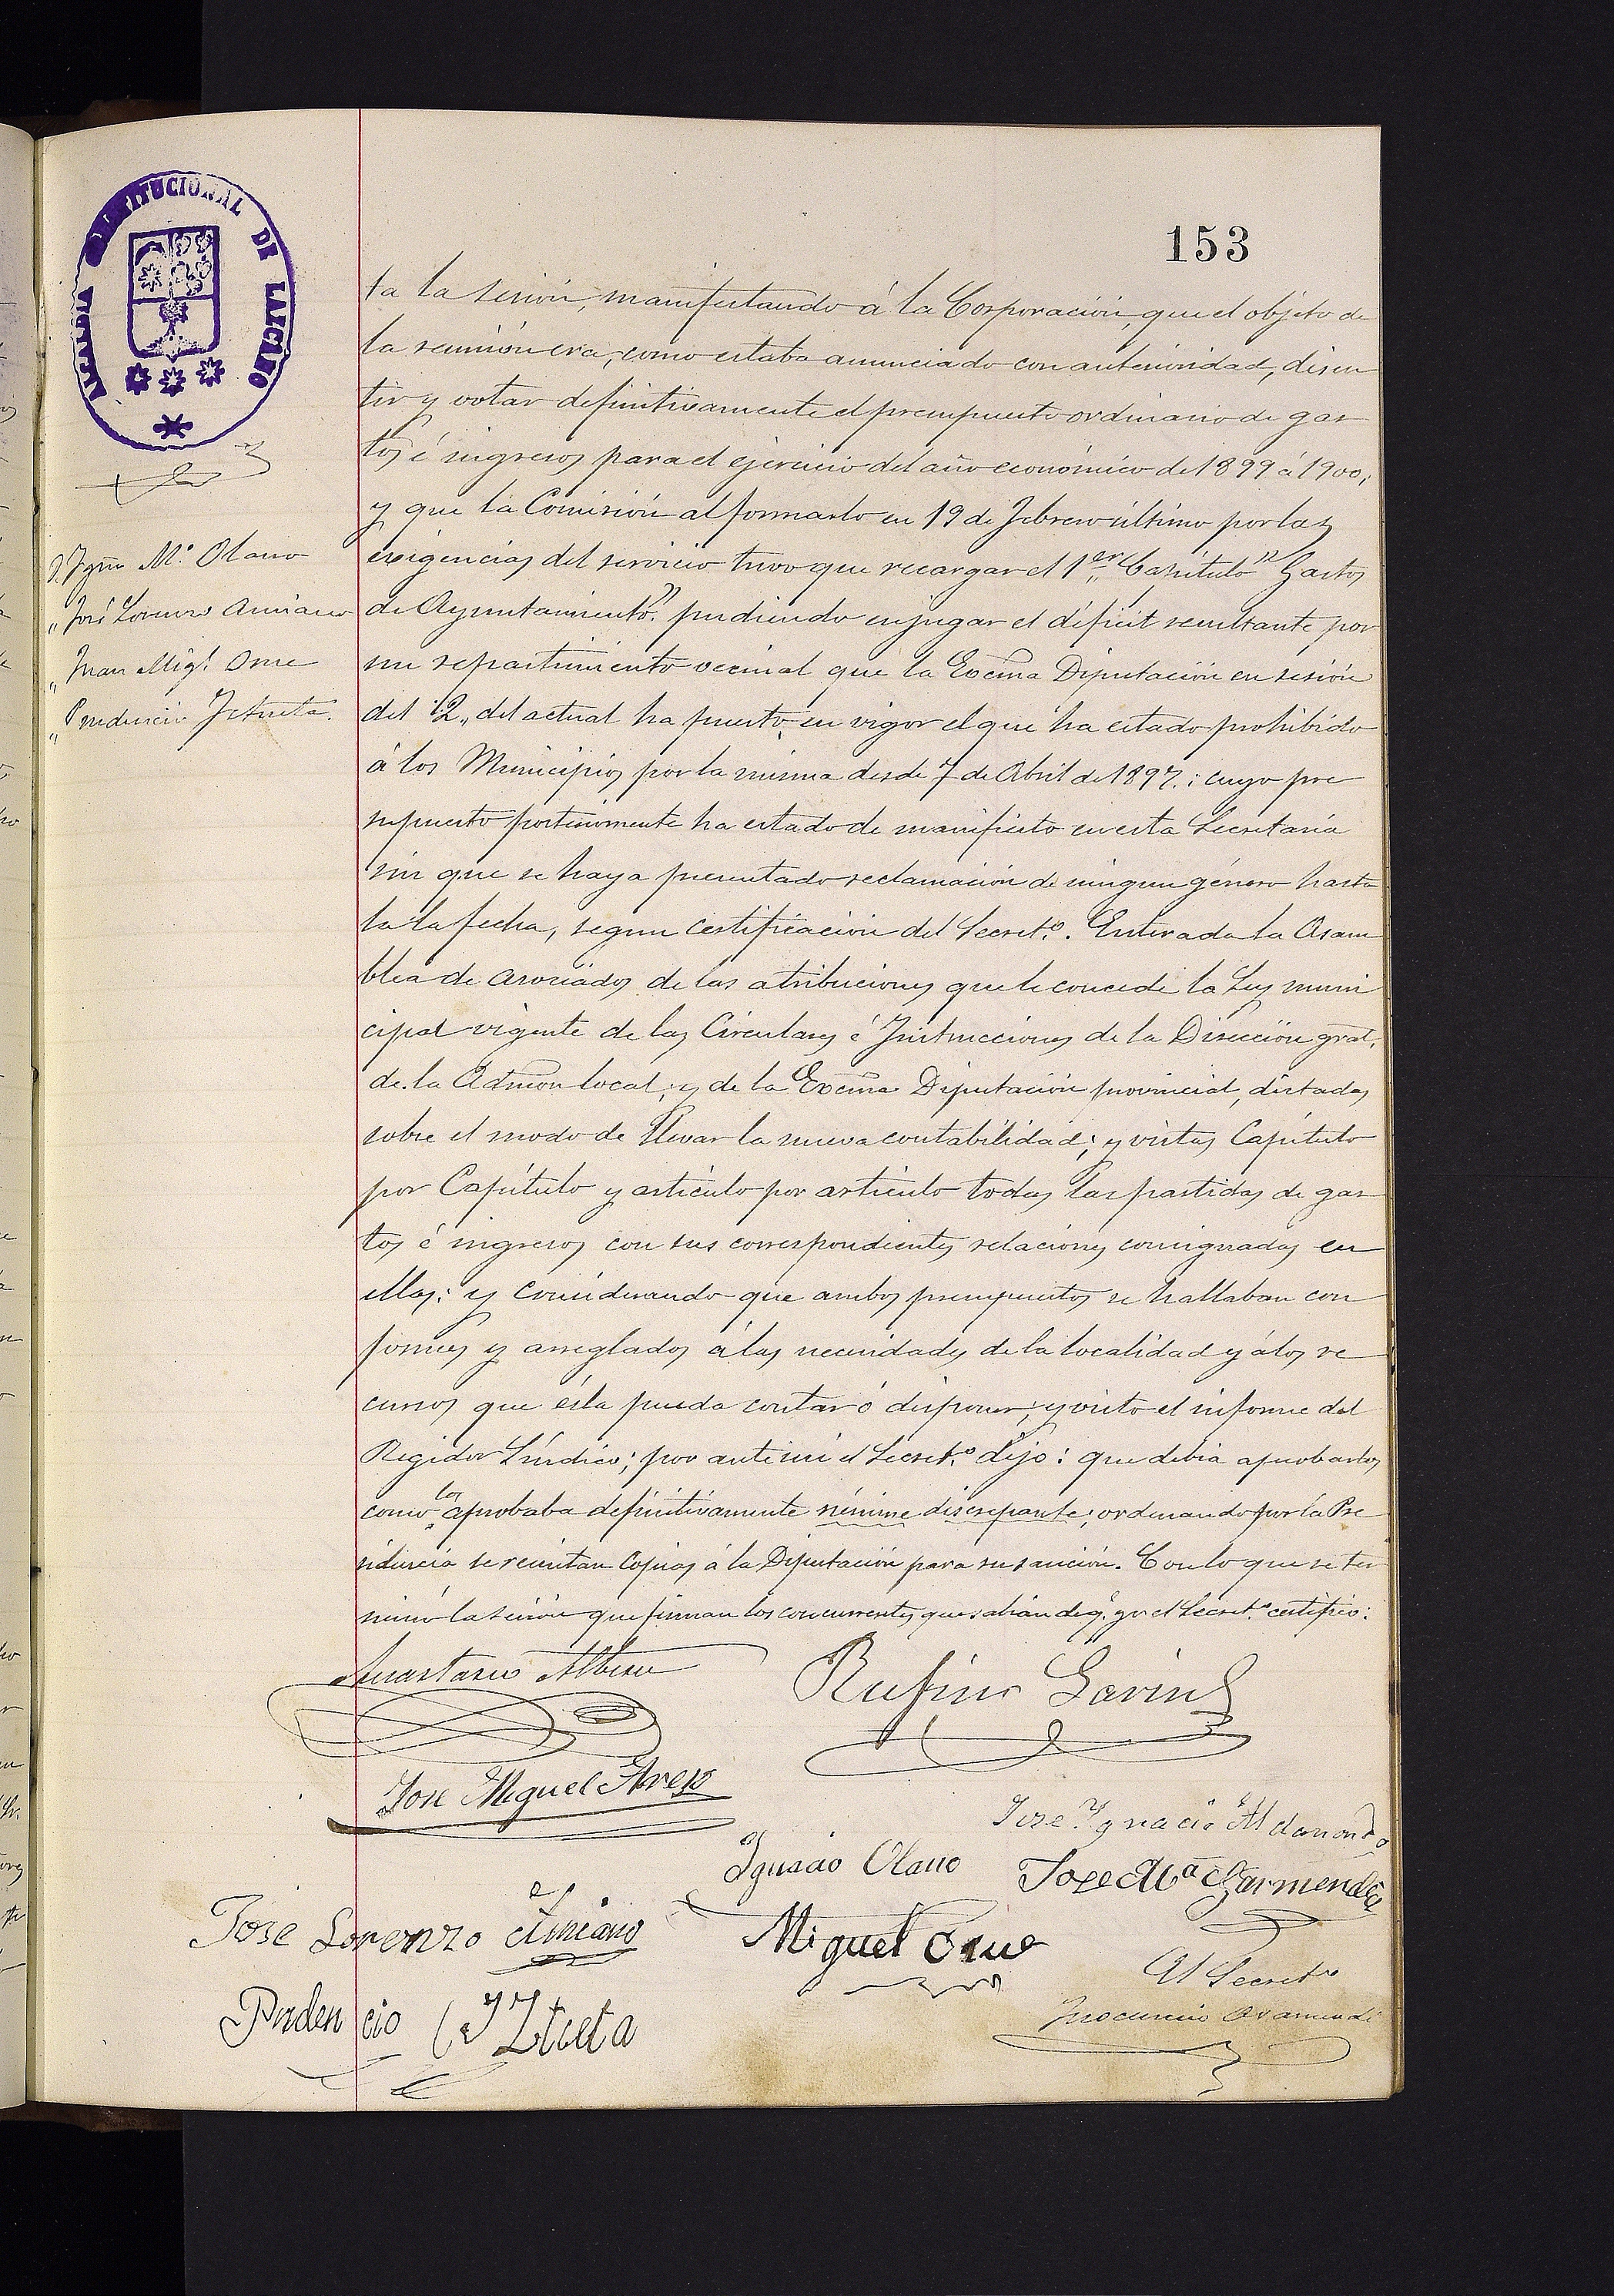 153
CONSTITUCIONAL DE LAZCANO
ALCALDIA
D. Ygn.º M.ª Olano
„ José Lorenzo Amiano
„ Juan Mig.l Orue
„ Prudencio Iztueta.
ta la sesión, manifestando á la Corporación, que el objeto de
la reunión era, como estaba anunciado con anterioridad, discu
tir y votar definitivamente el presupuesto ordinario de gas
tos é ingresos para el ejercicio del año económico de 1899 á 1900,
y que la Comisión al formarlo en 19 de Febrero último por las
exigencias del servicio tuvo que recargar el 1er „ Capítulo " Gastos
de Ayuntamiento". pudiendo enjugar el déficit resultante por
un repartimiento vecinal que la Excma Diputación en sesión
del 12„ del actual ha puesto en vigor el que ha estado prohibido
á los Municipios por la misma desde 7 de Abril de 1897.: cuyo pre
supuesto posteriormente ha estado de manifiesto en esta Secretaría
sin que se haya presentado reclamación de ningun género hasta
la la fecha, segun certificación del Secret.º. Enterada la Asam
blea de asociados de las atribuciones que le concede la Ley muni
cipal vigente de las Circulares é Instrucciones de la Dirección gral,
de la Admon local, y de la Excma Diputación provincial, dictadas
sobre el modo de llevar la nueva contabilidad; y vistas Capítulo
por Capítulo y artículo por artículo todas las partidas de gas
tos é ingresos con sus correspondientes relaciones consignadas en
ellas: y considerando que ambos presupuestos se hallaban con
formes y arreglados á las necesidades de la localidad y á los re
cursos que ésta pueda contar ó disponer; y visto el informe del
Regidor Síndico; por ante mi el Secret.º dijo: que debia aprobarlos
como los aprobaba definitivamente némine discrepante; ordenando por la Pre
sidencia se remitan Copias á la Diputación para su sanción. Con lo que se ter
minó la sesión que firman los concurrentes que sabían de q.e yo el Secret.º certifico:
Anastasio Albisu
Rufino Garin
José Miguel
José Ygnacio Aldanondo
Ygnacio Olano
Jose Mª Garmendia
José Lorenzo Amiano
Miguel Orue
El Secret.º
Prudencio Iztueta
Inocencio Aramendi